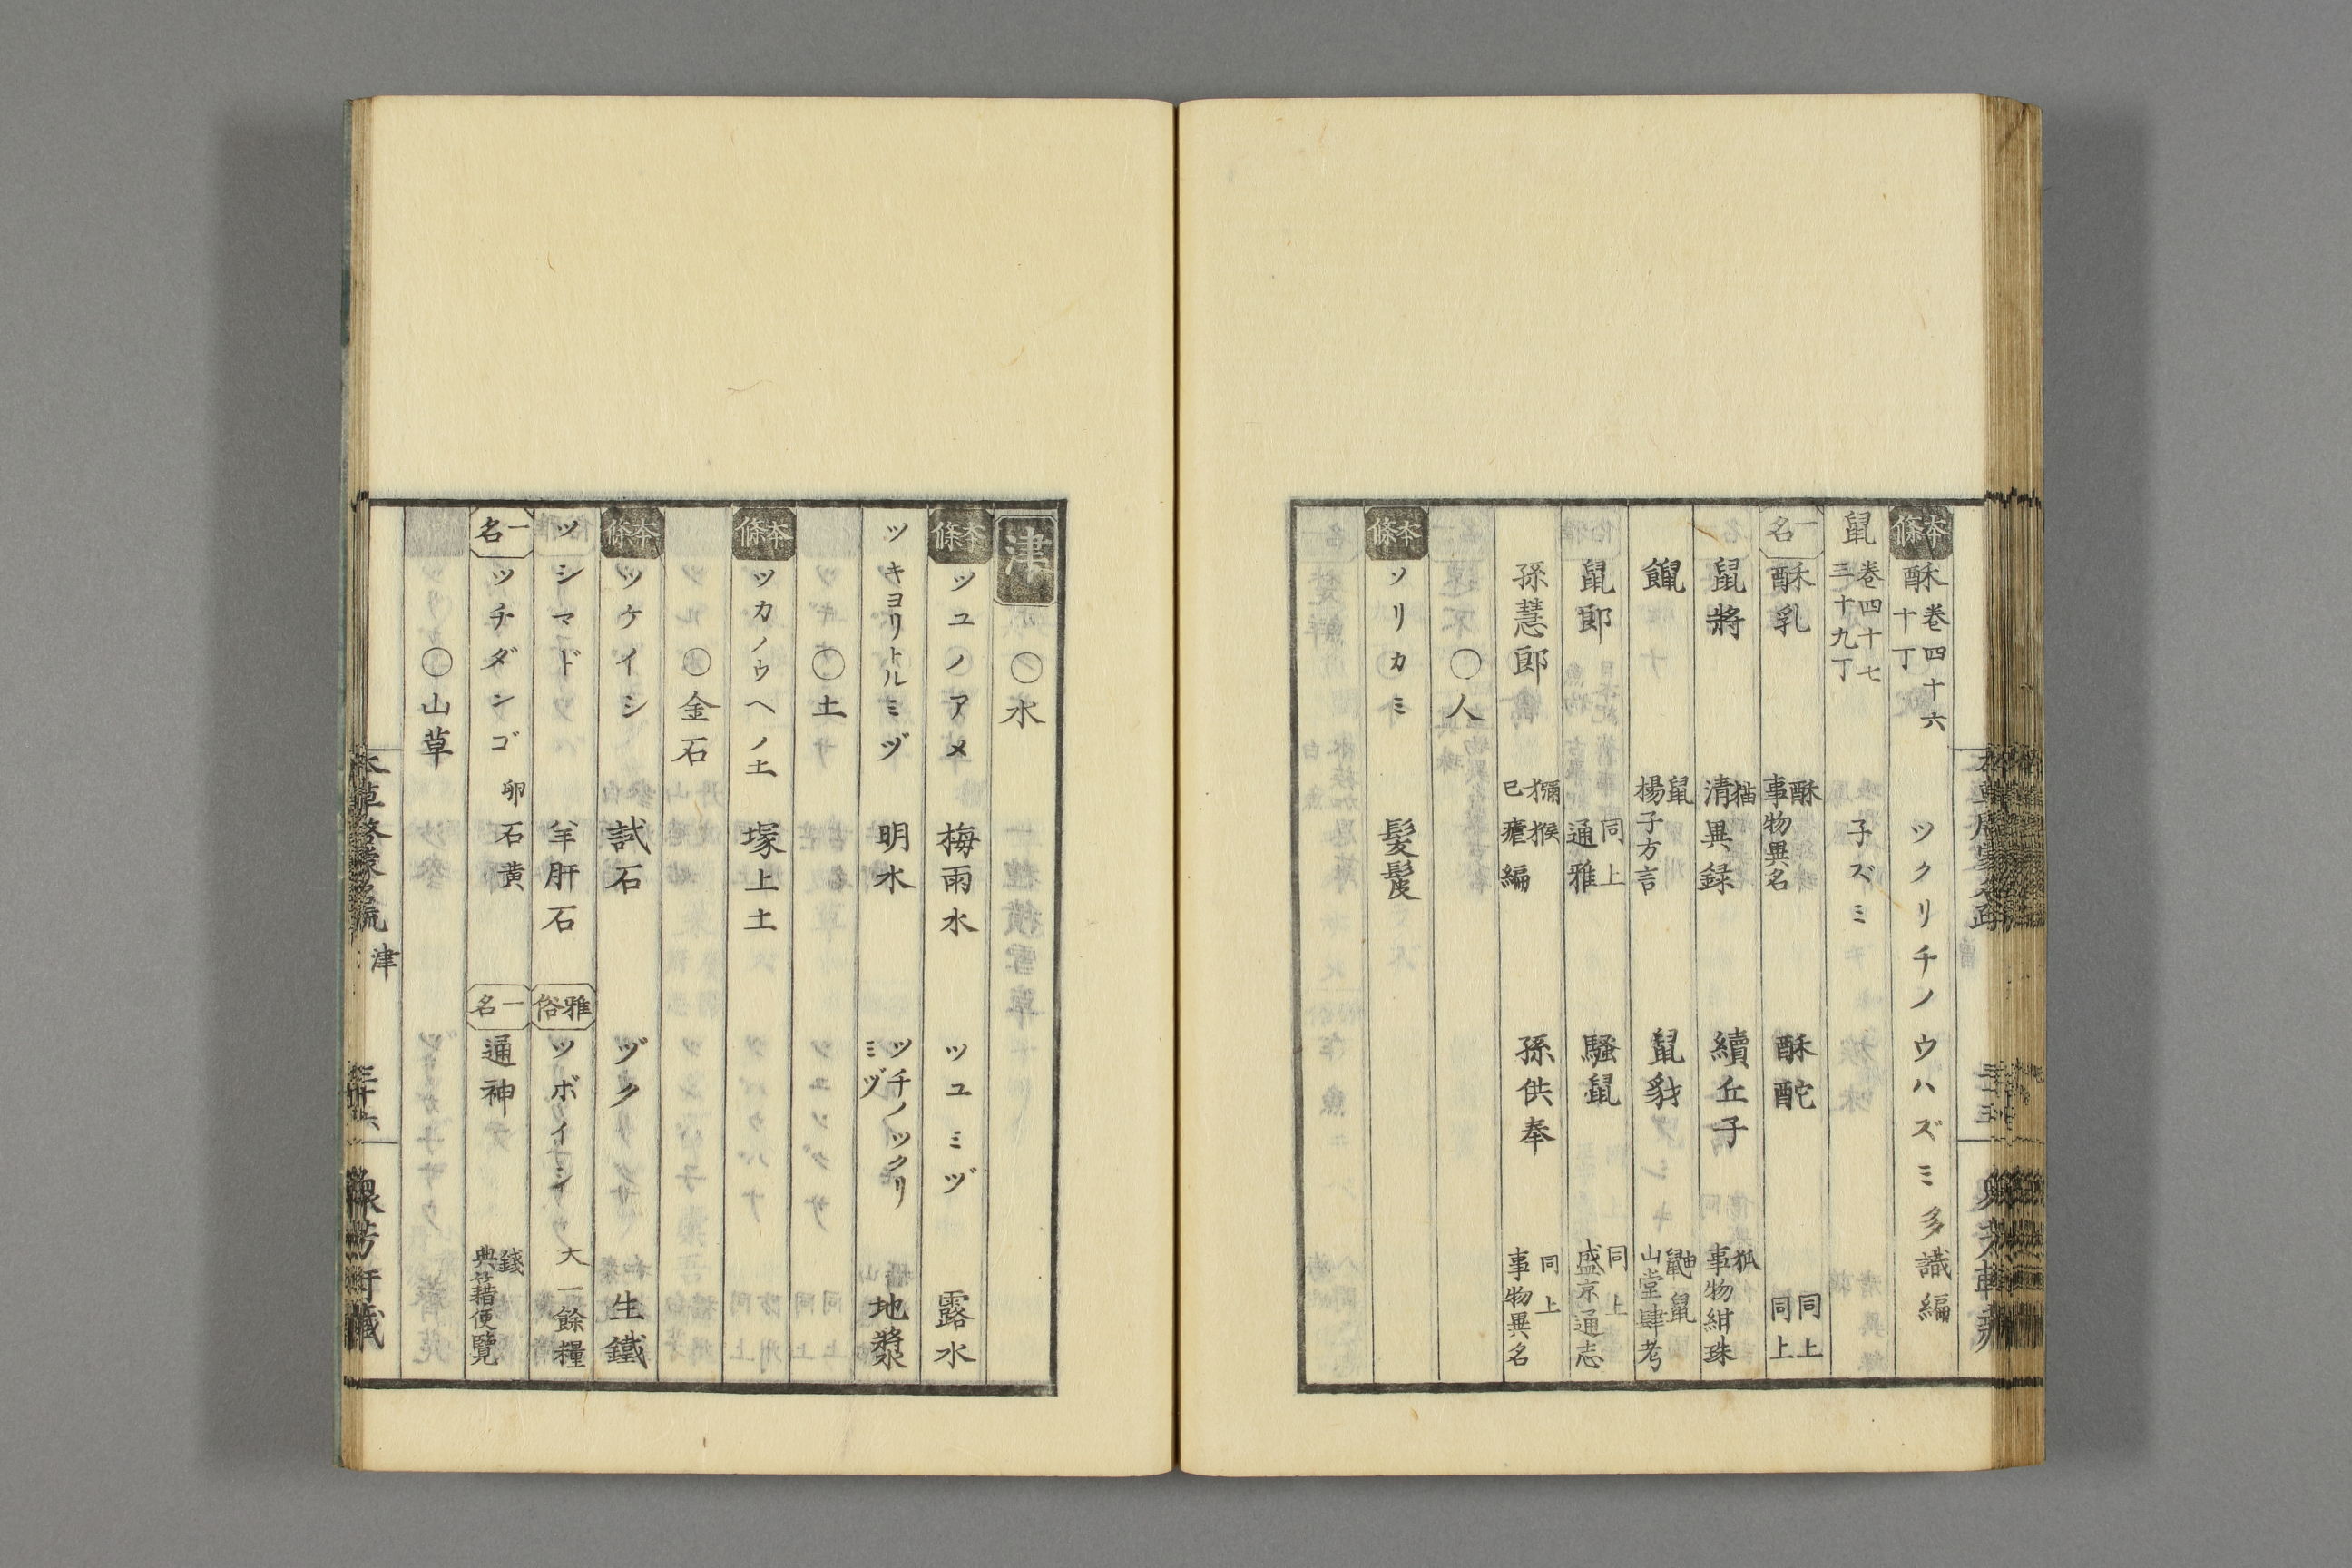 本條 酥 巻四十六 十丁 ツクリチノウハズミ 多識編
鼠 巻四十七 三十九丁 子ズミ
一名 酥乳 酥 事物異名 酥酡 同上 同上
鼠將 猫 清異録 續丘子 狐 事物紺珠
䶈 鼠 楊子方言 鼠豺 鼬鼠 山堂肆考
鼠郎 同上 通雅 騷鼠 同上 盛京通志
孫慧郎 獼猴 已瘧編 孫供奉 同上 事物異名
〇人
本條 ソリカミ 髲髢
津 〇水
本條 ツユノアメ 梅雨水 ツユミヅ 露水
ツキヨリトルミヅ 明水 ツチノツクリミヅ 地漿水
〇土
本條 ツカノウヘノ土 塚上土
〇金石
本條 ツケイシ 試石 ヅク 生鐵
ツシマドツ 羊肝石 雅俗 ツボイシ 大一餘糧
一名 ツチダンゴ 卵石黄 一名 通神 錢 典籍便覽
〇山草
本草啓蒙名疏 津 三十六 衆芳軒藏